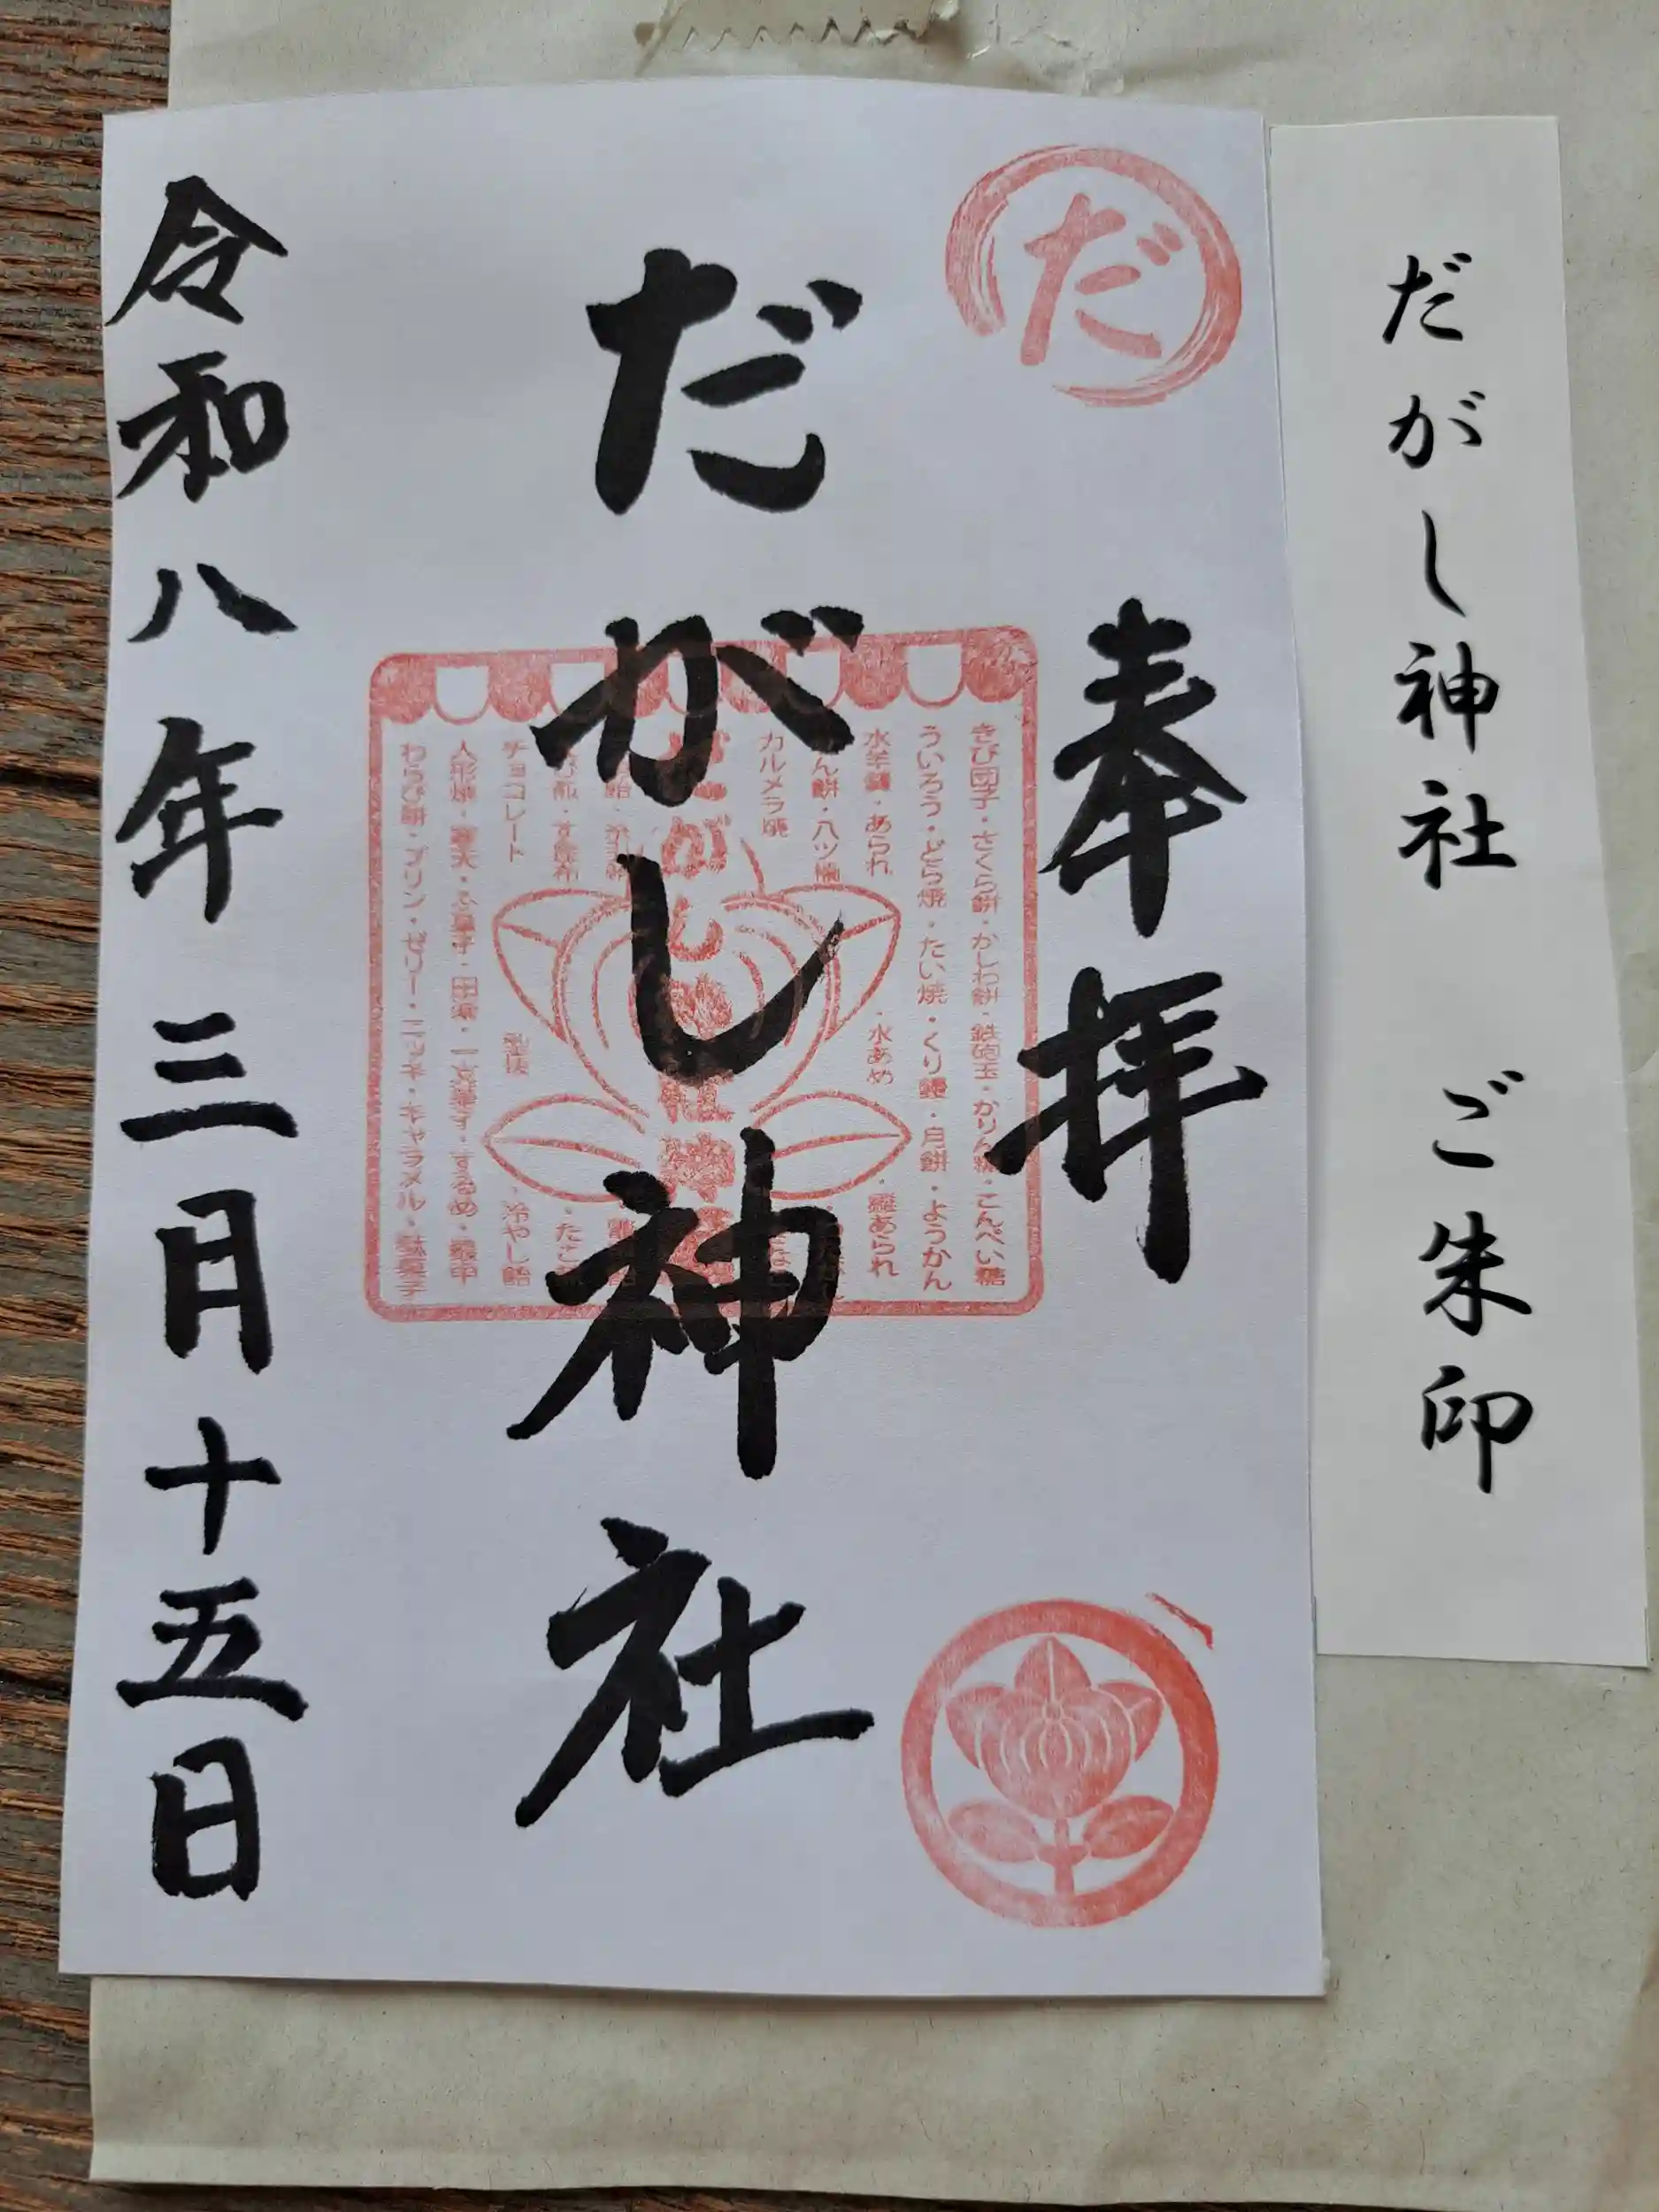 だがし神社 ご朱印
だ
奉拝
だがし神社
きび団子・さくら餅・かしわ餅・鉄砲玉・かりん糖・こんぺい糖
ういろう・どら焼・たい焼・くり饅・月餅・ようかん
水羊羹・あられ・水あめ・雛あられ
ん餅・八ツ橋
カルメラ焼
チョコレート・冷やし飴
わらび餅・プリン・ゼリー・ニッキ・キャラメル・麩菓子
令和八年三月十五日